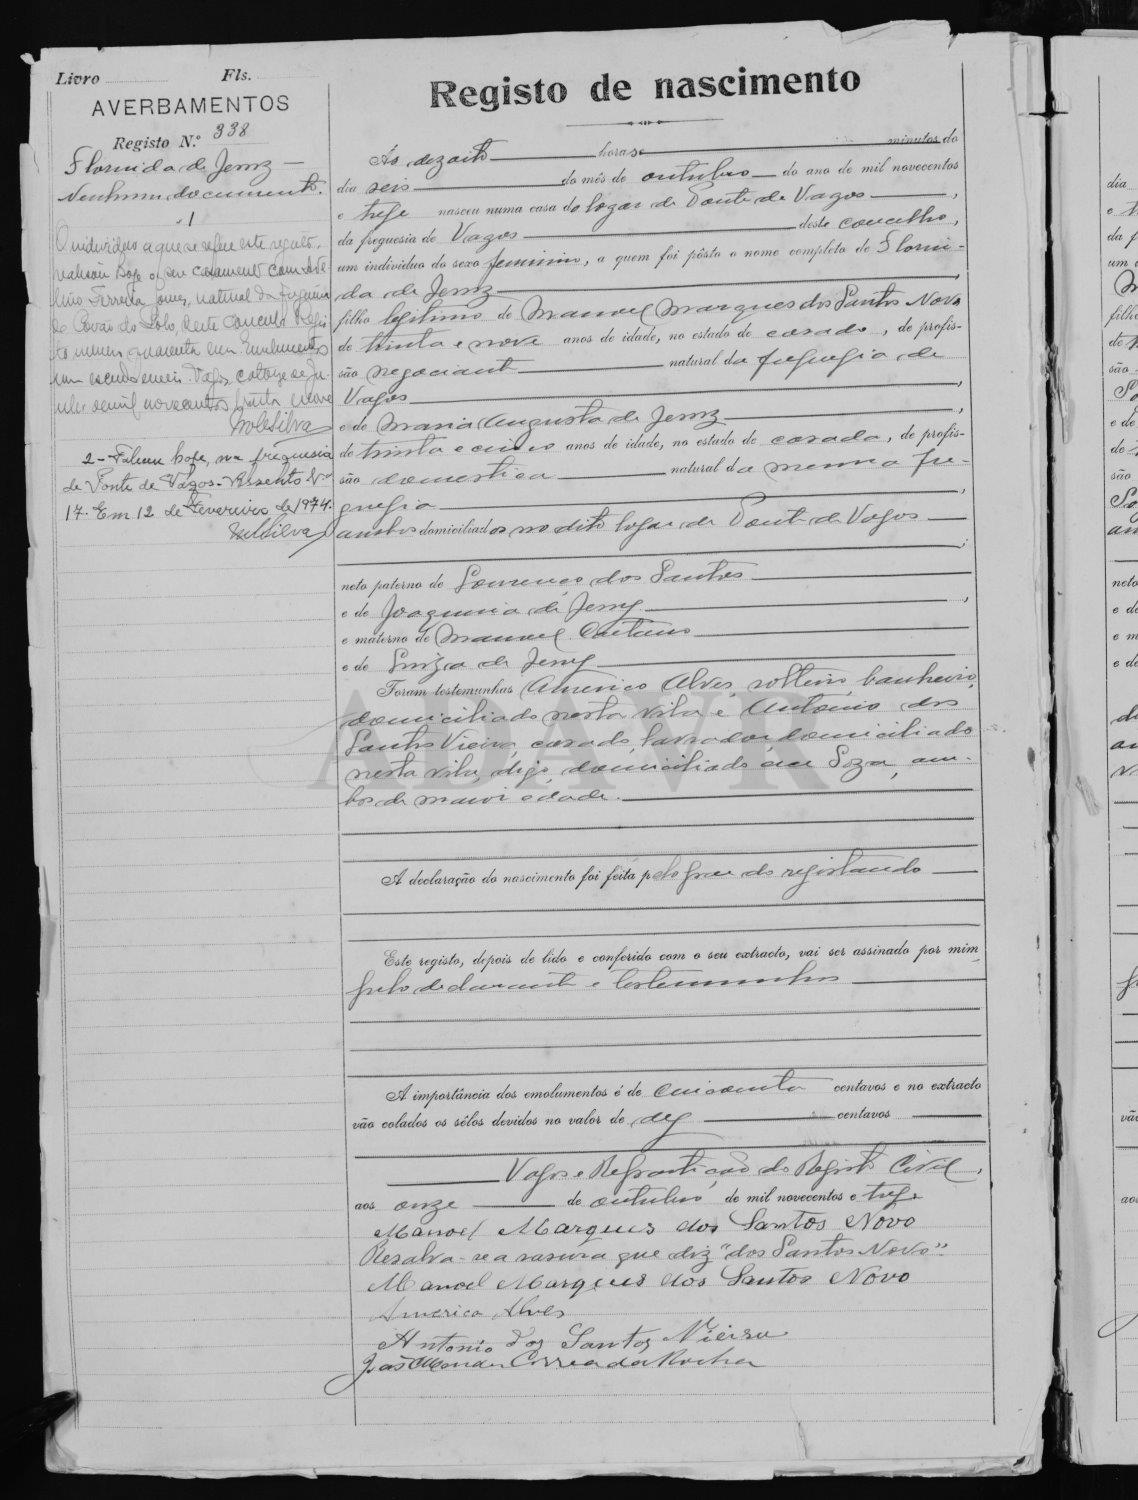 Livro Fls.
AVERBAMENTOS
Registo N.º 338
Florinda de Jesus
Nenhum documento.
1
O individuo a que se refere este registo,
realisou hoje o seu casamento com Ade-
lino Ferreira Jorge, natural da freguesia
de Covão do Lobo, deste concelho Regis-
to numero quarenta e um Emolumentos
um escudo e meio. Vagos, catorze de Ju-
de mil novecentos trinta e nove
MSilva
2 - Faleceu hoje, na freguesia
de Ponte de Vagos - Assento Nº
17. Em 12 de Fevereiro de 1974.
MSilva
Registo de nascimento
Ás dezoito horas e minutos do
dia seis do mês de outubro do ano de mil novecentos
e treze nasceu numa casa do logar de Ponte de Vagos,
da freguesia de Vagos deste concelho,
um individuo do sexo feminino, a quem foi pôsto o nome completo de Florin-
da de Jesus,
filho legitimo de Manoel Marques dos Santos Novo
de trinta e nove anos de idade, no estado de casado, de profis-
são negociante natural da freguesia de
Vagos,
e de Maria Augusta de Jesus,
de trinta e cinco anos de idade, no estado de casada, de profis-
são domestica natural da mesma fre-
guesia,
ambos domiciliados no dito logar de Ponte de Vagos
;
neto paterno de Lourenço dos Santos
e de Joaquina de Jesus,
e materno de Manuel Caetano
e de Luiza de Jesus
Foram testemunhas Americo Alves, solteiro, banheiro,
domiciliado nesta vila e Antonio dos
Santos Vieira, casado, lavrador domiciliado
nesta vila, digo, domiciliado em Soza, am-
bos de maior edade.
A declaração do nascimento foi feita pelo pae do registando
Este registo, depois de lido e conferido com o seu extracto, vai ser assinado por mim,
pelo declarante e testemunhas
A importância dos emolumentos é de cincoenta centavos e no extracto
vão colados os sêlos devidos no valor de dez centavos
Vagos e Repartição do Registo Civil,
aos onze de outubro de mil novecentos e treze
Manoel Marques dos Santos Novo
Resalva-se a rasura que diz "dos Santos Novo".
Manoel Marques dos Santos Novo
Americo Alves
Antonio dos Santos Vieira
João Mendes Correa da Rocha
ADAVR